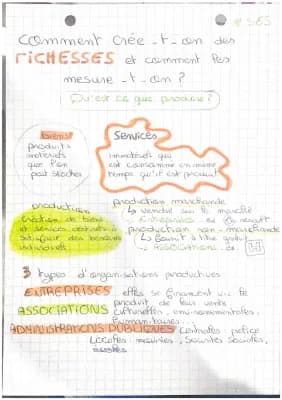 # SES
Comment crée-t-on des
RICHESSES et comment les
mesure-t-on ?
Qu'est ce que produire ?
biens
produits
matériels
que l'on
peut stocker
Services
immatériels qui
est consommé en même
temps qu'il est produit
production
création de biens
et services destinés à
satisfaire des besoins
individuels
production marchande
↳ vendre sur le marché
production non-marchande
↳ fournit à titre gratuit
- ASSOCIATIONS
3 types d'organisations productives
ENTREPRISES elles se financent
produit de leur vente
ASSOCIATIONS culturelles, environnementales,
humanitaires...
ADMINISTRATIONS PUBLIQUES centrales police
Locales: mairies, Sécurités sociales,